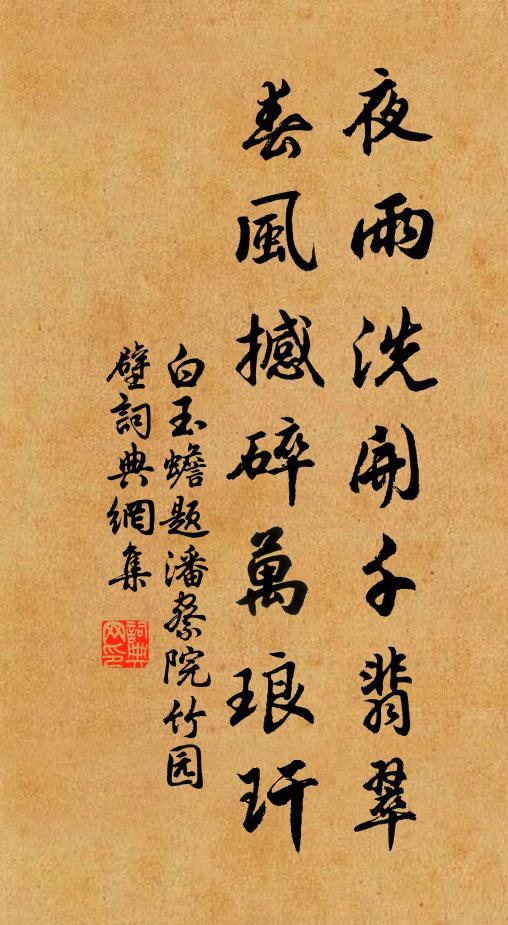 夜雨洗開千翡翠
春風撼碎萬琅玕
白玉蟾题潘察院竹园
壁詞典網集
詞典网印